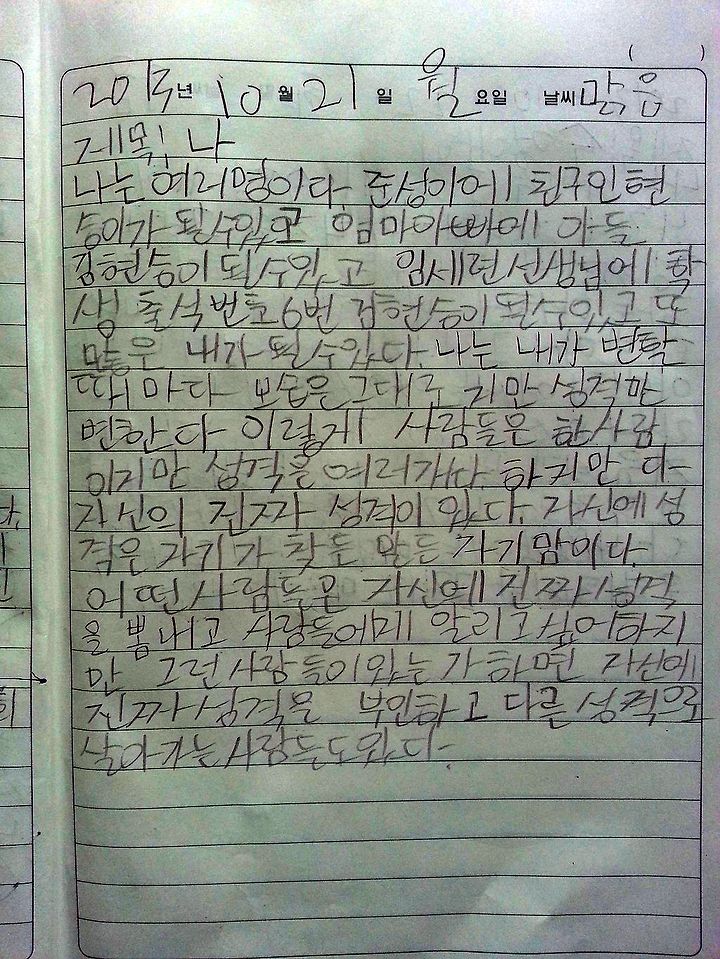 2013년 10월 21일 월요일 날씨 맑음
제목: 나
나는 여러명이다. 준성이에 친구인 현
승이가 될수있고 엄마아빠에 아들
김현승이 될수있고 임세련선생님에 학
생 출석번호6번 김현승이 될수있고 또
많은 내가 될수있다 나는 내가 변할
때마다 모습은 그대로 지만 성격만
변한다 이렇게 사람들은 한사람
이지만 성격은 여러개다 하지만 다
자신의 진짜 성격이 있다. 자신에 성
격은 자기가 찾든 말든 자기맘이다.
어떤사람들은 자신에 진짜성격
을 뽐내고 사람들에게 알리고싶어하지
만 그런사람들이 있는가하면 자신에
진짜성격을 부인하고 다른성격으로
살아가는사람들도있다.